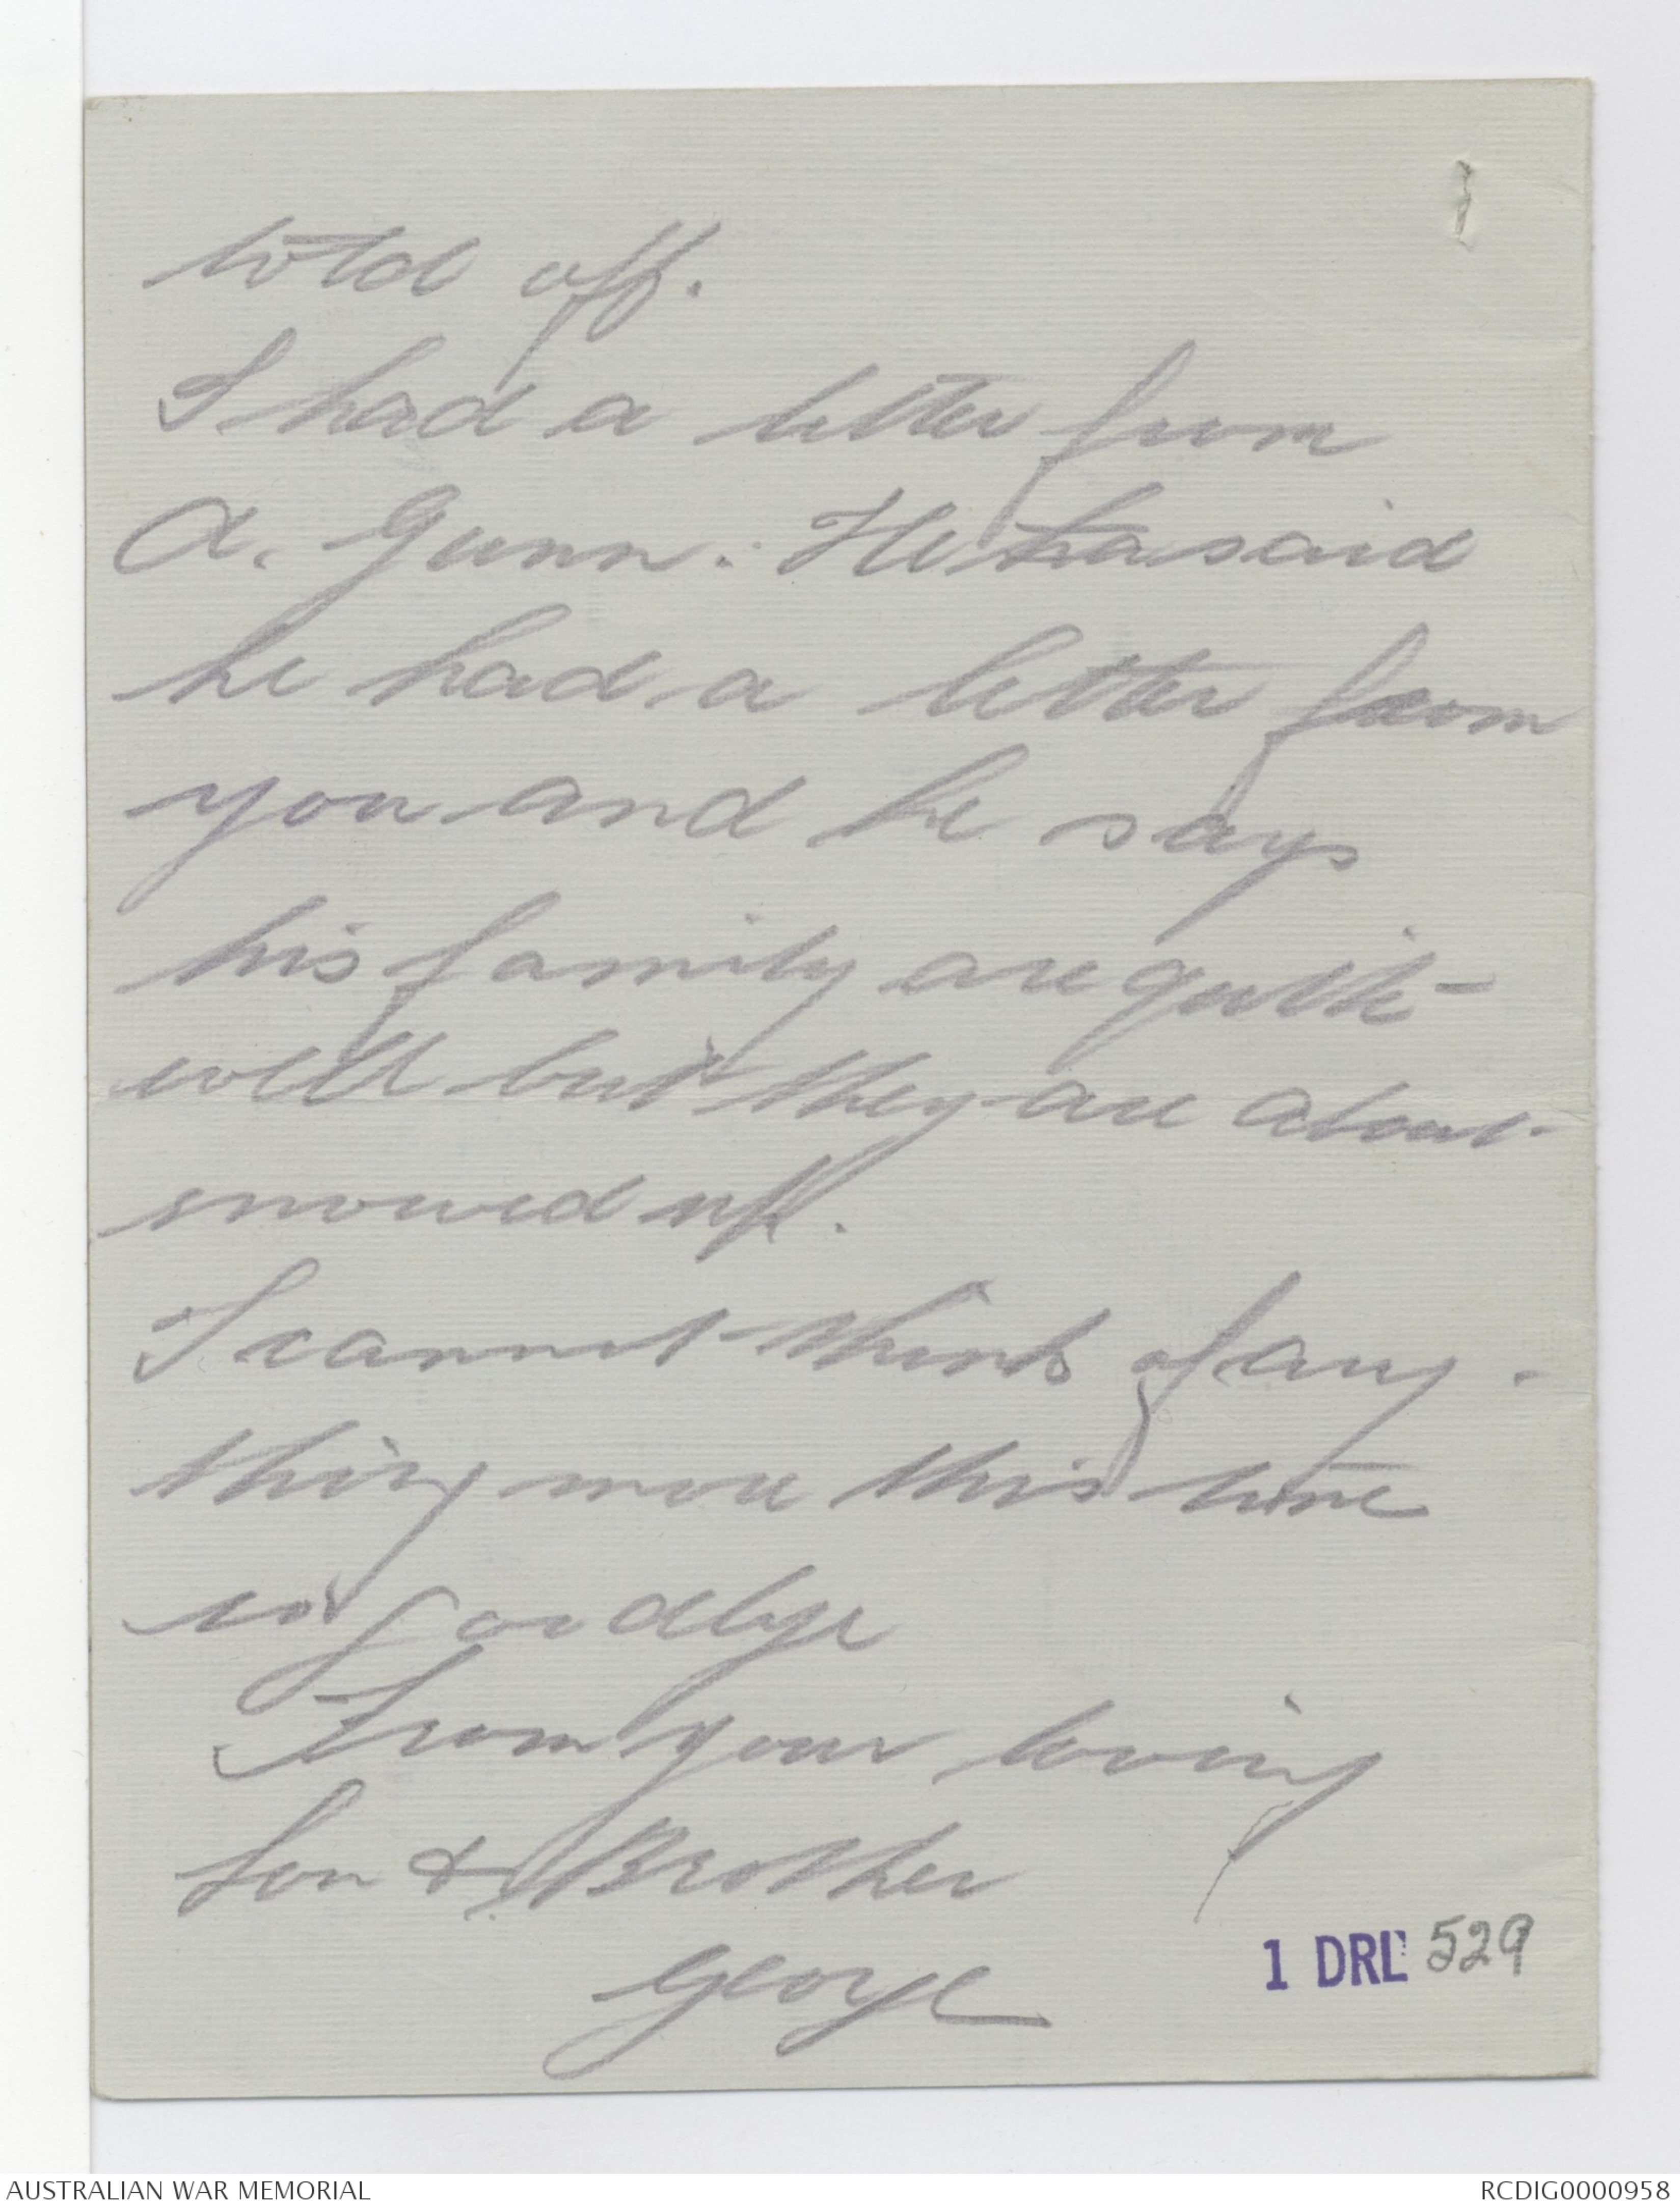 told off.
I had a letter from
A. Gunn. He ha said
he had a letter from
you and he says
his family are quite
well but they are about
snowed up.
I cannot think of any-
thing more this time
so goodbye
From your loving
Son & Brother
George
1 DRL 529
AUSTRALIAN WAR MEMORIAL
RCDIG0000958